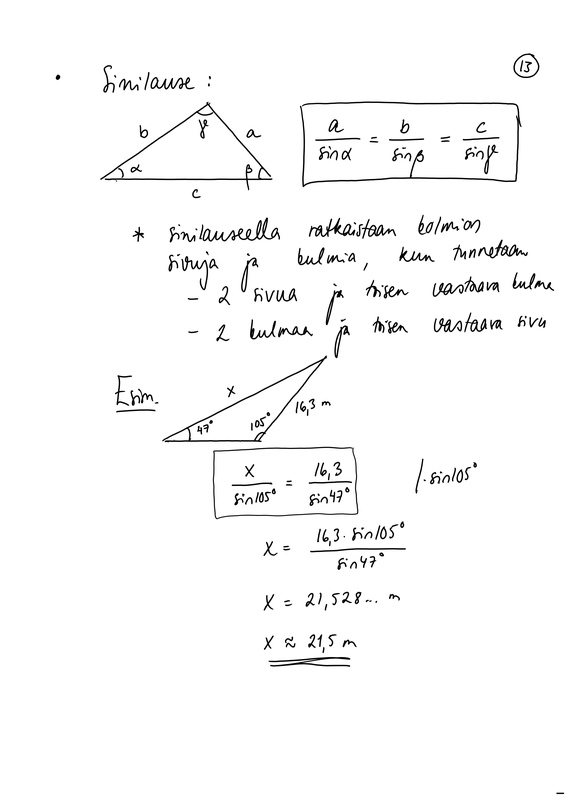 13
• Sinilause :
b γ a
α β
c
a/sinα = b/sinβ = c/sinγ
* sinilauseella ratkaistaan kolmion
sivuja ja kulmia, kun tunnetaan
- 2 sivua ja toisen vastaava kulma
- 2 kulmaa ja toisen vastaava sivu
Esim.
x
47° 105° 16,3 m
x/sin105° = 16,3/sin47° /·sin105°
x = 16,3·sin105°/sin47°
x = 21,528... m
x ≈ 21,5 m